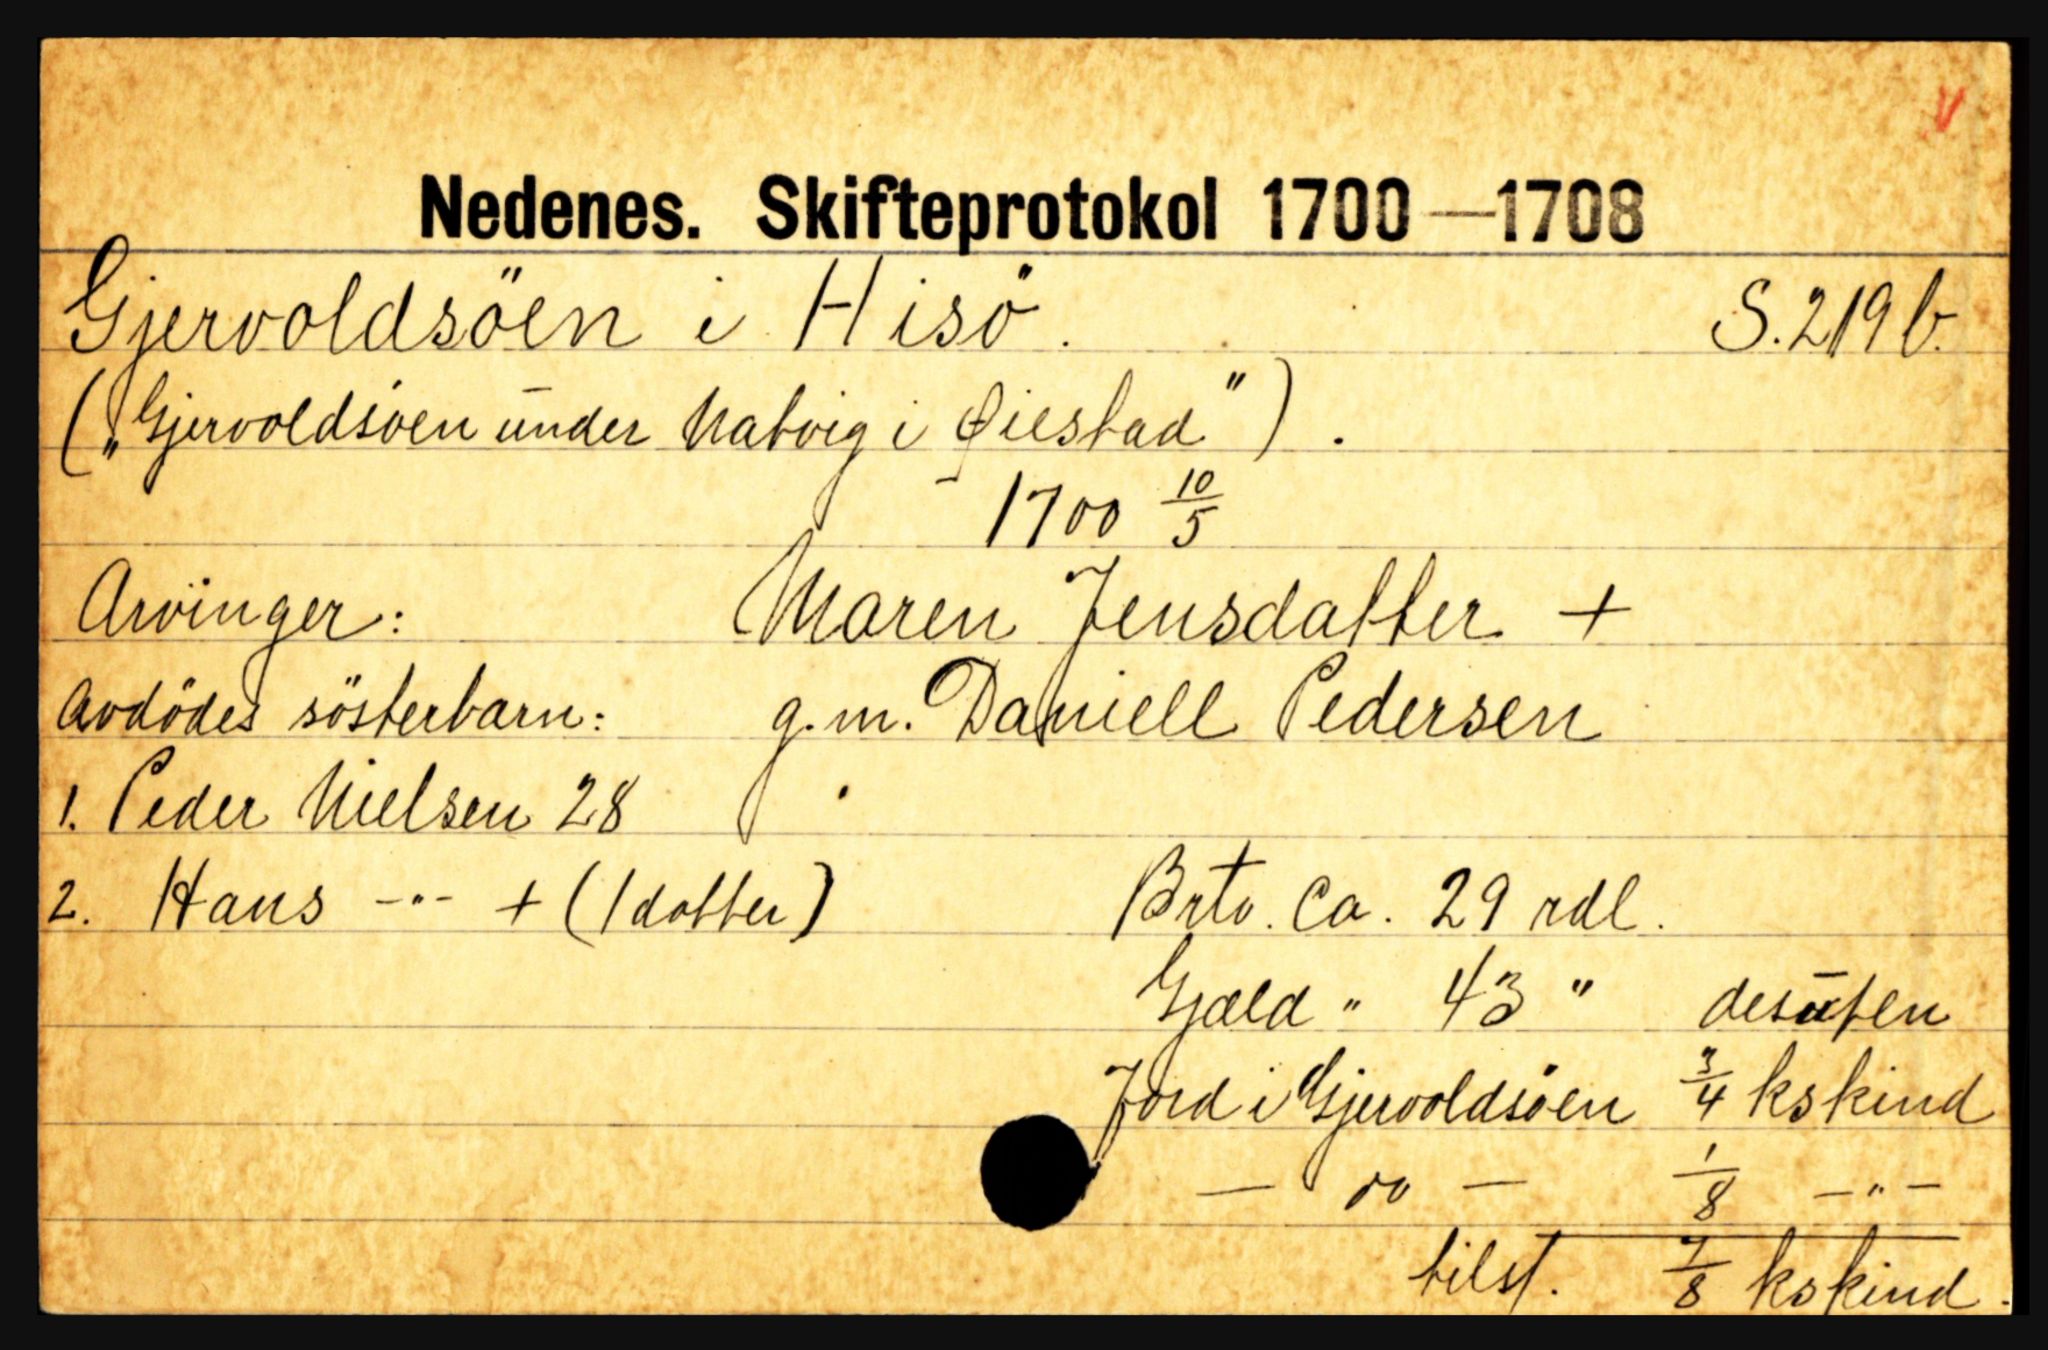 Nedenes. Skifteprotokol 1700—1708
Gjervoldsöen i Hisö. S. 219 b.
(„Gjervoldsöen under Natvig i Øiestad").
1700 10/5
Arvinger: Maren Jensdatter +
Avdödes sösterbarn: g.m. Daniell Pedersen
1. Peder Nielsen 28
2. Hans -"- + (1 dotter) Brto. Ca. 29 rdl.
Gjæld " 43 " desuten
Jord i Gjervoldsöen 3/4 kskind
— do — 1/8 —"—
tilst. 7/8 kskind.